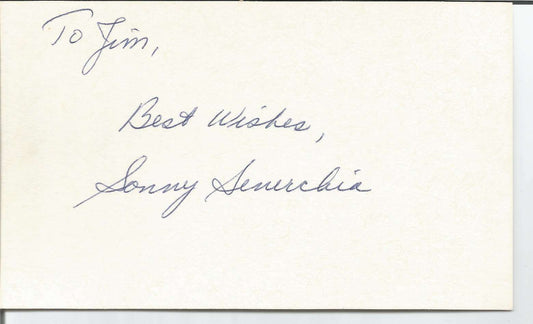 To Jim,
Best Wishes,
Sonny Senerchia